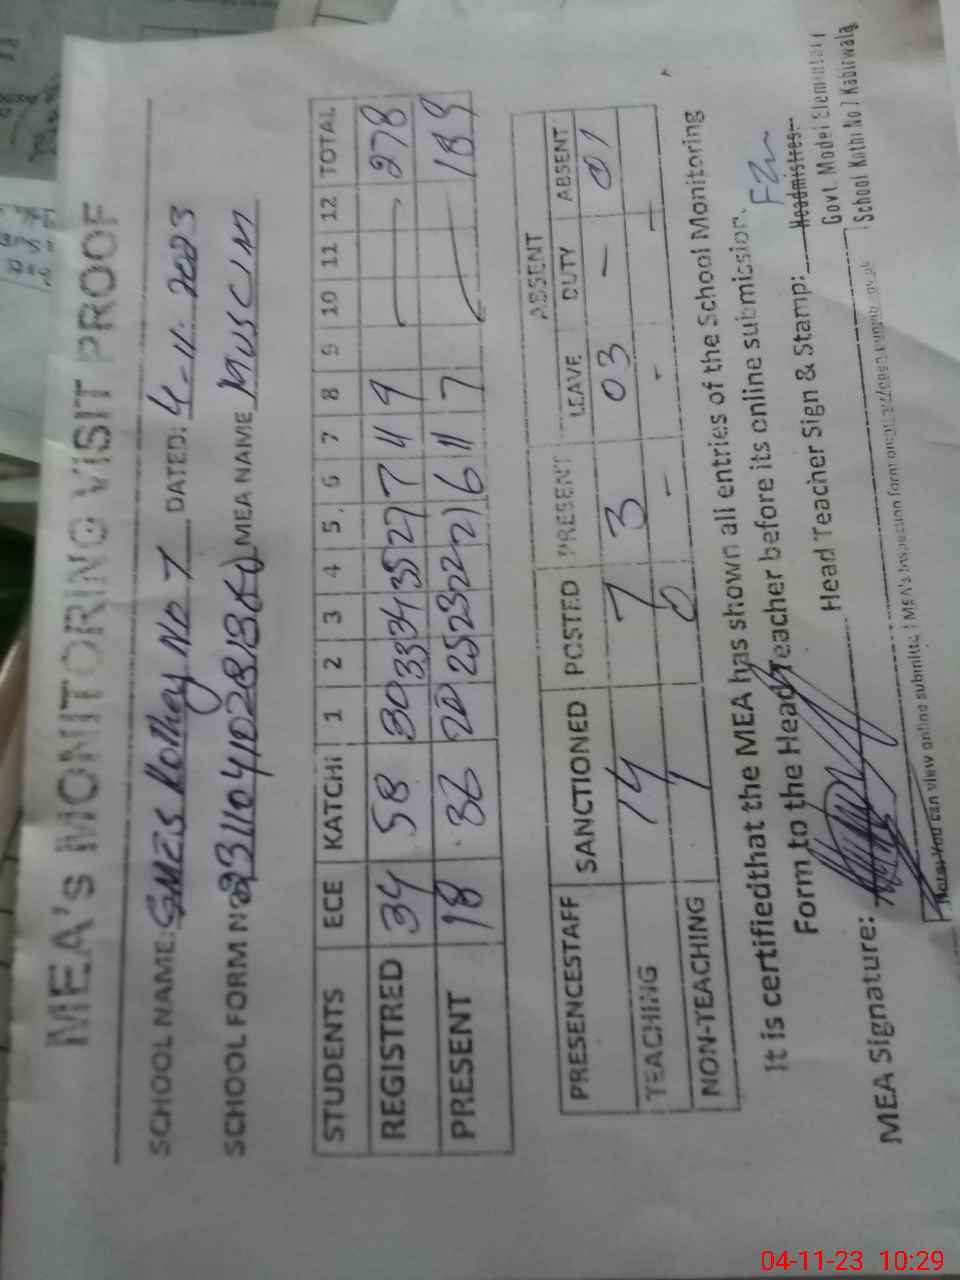 MEA's MONITORING VISIT PROOF
SCHOOL NAME: GMES Kothey No 7 DATED: 4-11-2023
SCHOOL FORM No MEA NAME MUSLIM
STUDENTS ECE KATCHI 1 2 3 4 5 6 7 8 9 10 11 12 TOTAL
REGISTRED 34 58 30 33 34 35 27 7 11 9 278
PRESENT 18 36 20 25 23 22 21 6 11 7 189
ABSENT
PRESENCESTAFF SANCTIONED POSTED PRESENT LEAVE DUTY ABSENT
TEACHING 14 7 3 03 - 01
NON-TEACHING 1 0 - - -
It is certifiedthat the MEA has shown all entries of the School Monitoring
Form to the Head Teacher before its online submission.
MEA Signature: Head Teacher Sign & Stamp: Headmistres
Govt. Model Elementary
School Kothi No 7 Kabirwala
Note: You can view online submitted MEA's Inspection form on
04-11-23 10:29